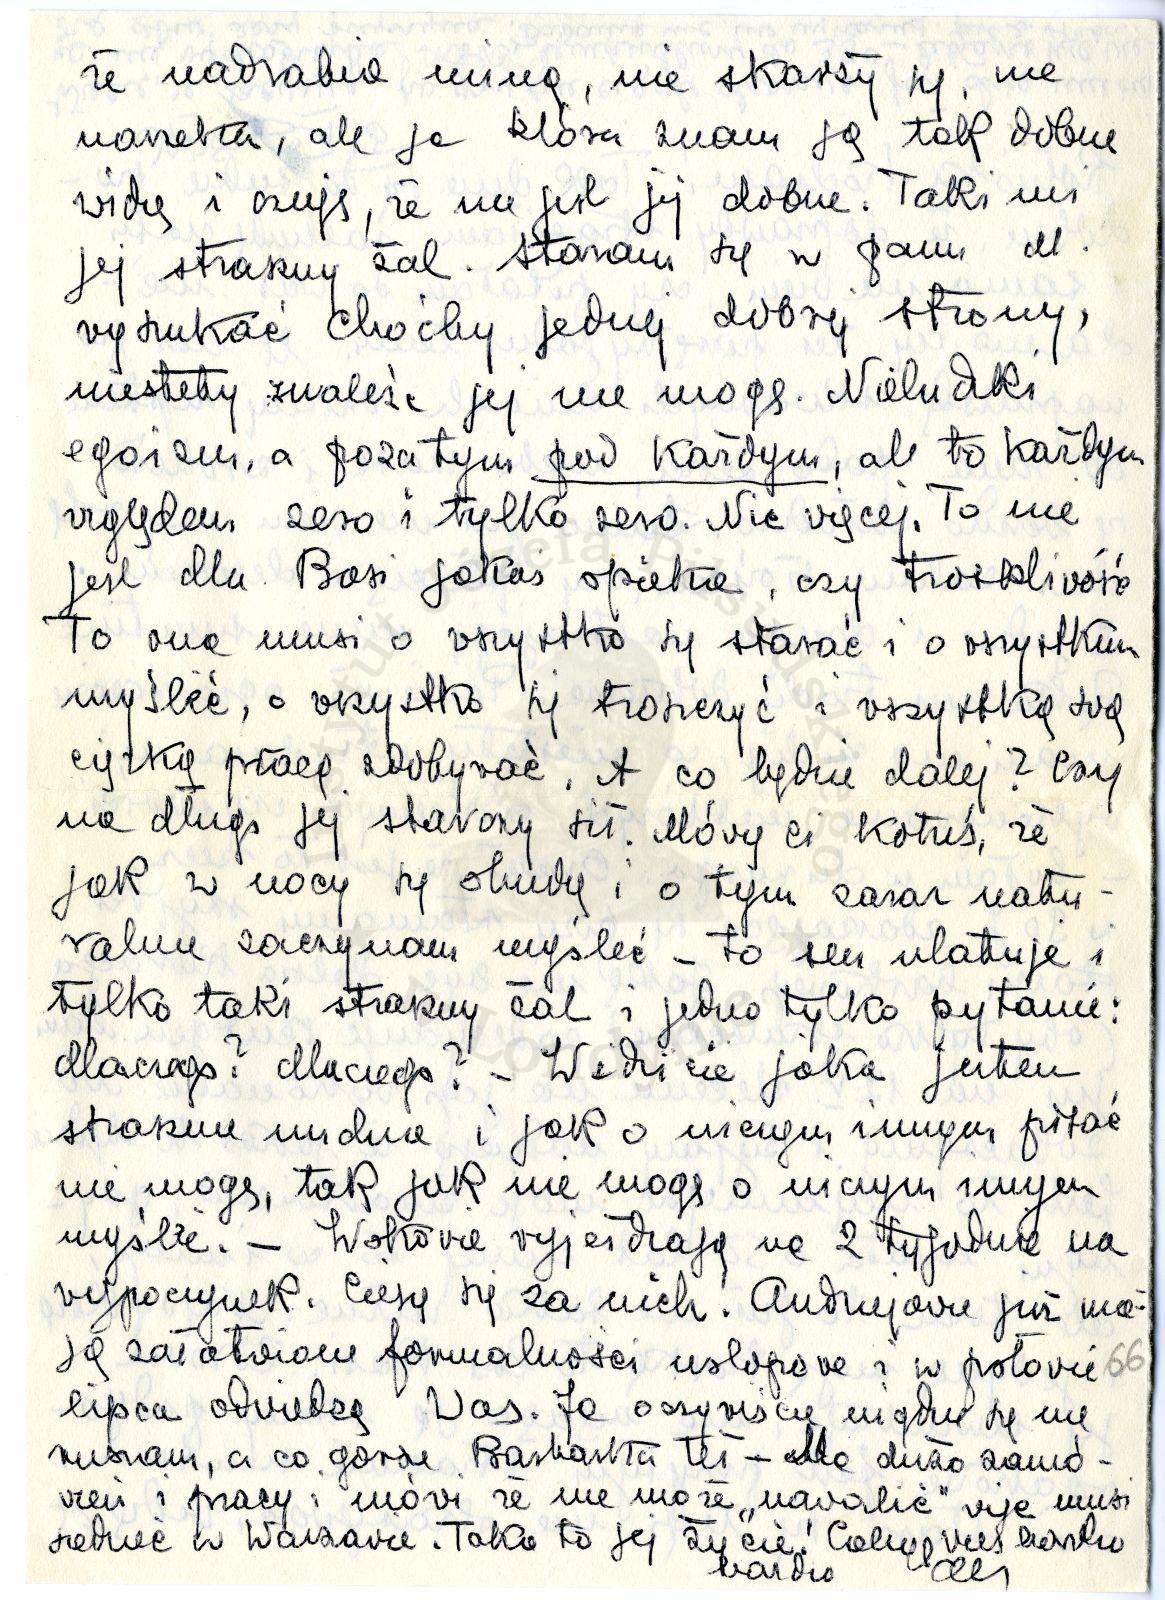 że nadrabia miną, nie skarży się, nie
narzeka, ale ja która znam ją tak dobrze
widzę i czuję, że nie jest jej dobrze. Taki mi
jej straszny żal. Staram się w panu M.
wyszukać choćby jednej dobrej strony,
niestety znaleźć jej nie mogę. Nieludzki
egoizm, a poza tym pod każdym, ale to każdym
względem zero i tylko zero. Nic więcej. To nie
jest dla Basi jakaś opieka, czy troskliwość
To ona musi o wszystko się starać i o wszystkim
myśleć, o wszystko się troszczyć i wszystką swą
ciężką pracą zdobywać. A co będzie dalej? Czy
na długo jej starczy sił. Mówię ci Kotuś, że
jak w nocy się obudzę i o tym zaraz natu-
ralnie zaczynam myśleć – to sen ulatuje i
tylko taki straszny żal i jedno tylko pytanie:
dlaczego? dlaczego? – Widzicie jaka jestem
strasznie nudna i jak o niczym innym pisać
nie mogę, tak jak nie mogę o niczym innym
myśleć. – wyjeżdżają na 2 tygodnie na
wypoczynek. Cieszę się za nich! Andrzejowie już ma-
ją załatwione formalności urlopowe i w połowie 66
lipca odwiedzą Was. Ja oczywiście nigdzie się nie
ruszam, a co gorsze Barbarka też – Ma dużo zamó-
wień i pracy i mówi że nie może „nawalić" więc musi
siedzieć w Warszawie. Takie to jej życie! Całuję was bardzo
bardzo
Instytut Józefa Piłsudskiego
w Londynie